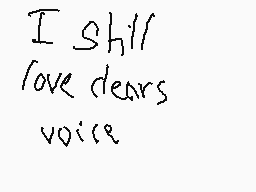 I still
love dears
voice